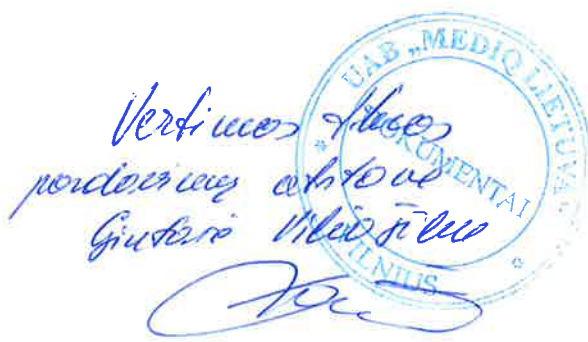 UAB „MEDIQ LIETUVA"
DOKUMENTAI
VILNIUS
Vertimas tikras
pardavimų atstovė
Gintarė